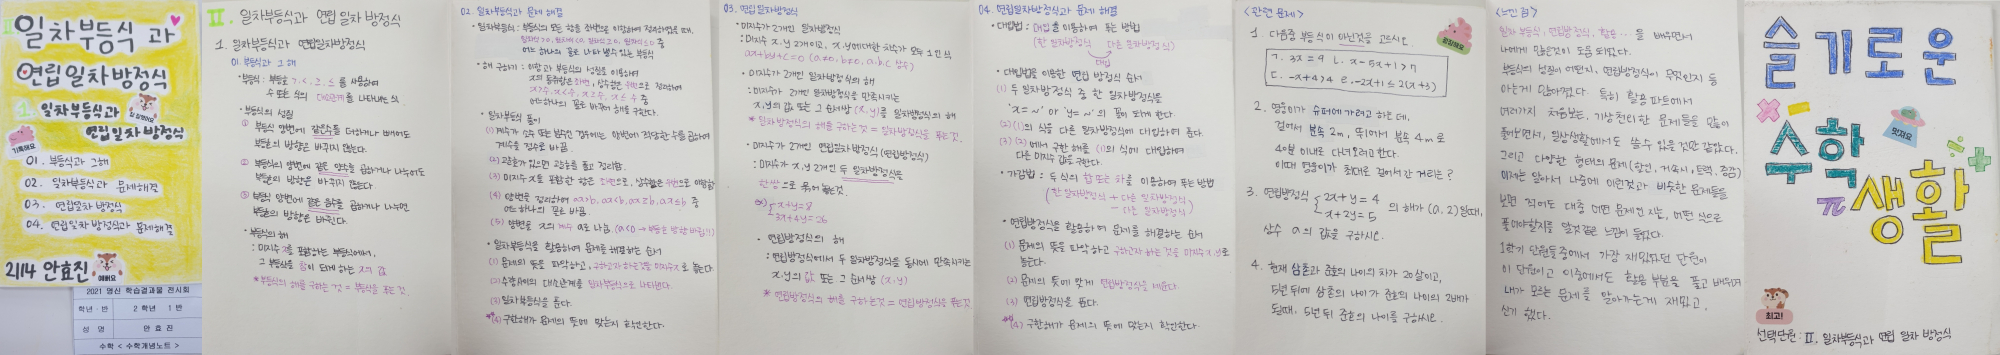 Ⅱ 일차부등식 과
연립 일차 방정식
1. 일차부등식과
연립일차방정식
참 잘했어요
기특해요
01. 부등식과 그해
02. 일차부등식과 문제해결
03. 연립일차 방정식
04. 연립일차 방정식과 문제해결
2114 안효진
예뻐요
2021 명신 학습결과물 전시회
학년 · 반 2 학년 1 반
성 명 안 효 진
수학 < 수학개념노트 >
Ⅱ. 일차부등식과 연립 일차 방정식
1. 일차부등식과 연립일차방정식
01. 부등식과 그 해
• 부등식 : 부등호 >, <, ≥, ≤ 를 사용하여
수 또는 식의 대소관계를 나타내는 식.
• 부등식의 성질
① 부등식 양변에 같은수를 더하거나 빼어도
부등호의 방향은 바뀌지 않는다.
② 부등식의 양변에 같은 양수를 곱하거나 나누어도
부등호의 방향은 바뀌지 않는다.
③ 부등식 양변에 같은 음수를 곱하거나 나누면
부등호의 방향은 바뀐다.
• 부등식의 해
: 미지수 x를 포함하는 부등식에서,
그 부등식을 참이 되게 하는 x의 값
* 부등식의 해를 구하는 것 = 부등식을 푸는 것.
02. 일차부등식과 문제 해결
• 일차부등식 : 부등식의 모든 항을 좌변으로 이항하여 정리하였을 때,
일차식>0, 일차식<0, 일차식≥0, 일차식≤0 중
어느 하나의 꼴로 나타나는 부등식
• 해 구하기 : 이항과 부등식의 성질을 이용하여
x>수, x<수, x≥수, x≤수 중
어느하나의 꼴로 바꾸어 해를 구한다.
• 일차부등식 풀이
(1) 계수가 소수 또는 분수인 경우에는 양변에 적당한 수를 곱하여
계수를 정수로 바꿈.
(2) 괄호가 있으면 괄호를 풀고 정리함.
(3) 미지수 x를 포함한 항은 좌변으로, 상수항은 우변으로 이항함
(4) 양변을 정리하여 ax>b, ax<b, ax≥b, ax≤b 중
어느 하나의 꼴로 바꿈.
(5) 양변을 x의 계수 a로 나눔. (a<0 → 부등호 방향 바뀜)
• 일차부등식을 활용하여 문제를 해결하는 순서
(1) 문제의 뜻을 파악하고, 구하고자하는것을 미지수 x로 놓는다.
(2) 수량사이의 대소관계를 일차부등식으로 나타낸다.
(3) 일차부등식을 푼다.
*(4) 구한해가 문제의 뜻에 맞는지 확인한다.
03. 연립 일차 방정식
• 미지수가 2개인 일차방정식
: 미지수 x, y 2개이고, x, y에대한 차수가 모두 1인 식
ax+by+c=0 (a≠0, b≠0, a, b, c 상수)
• 미지수가 2개인 일차방정식의 해
: 미지수가 2개인 일차방정식을 만족시키는
x, y의 값 또는 그 순서쌍 (x, y)를 일차방정식의 해
* 일차방정식의 해를 구하는것 = 일차방정식을 푸는 것.
• 미지수가 2개인 연립일차방정식 (연립방정식)
: 미지수 x, y 2개인 두 일차방정식을
한 쌍으로 묶어 놓은것.
ex) x+y=8
3x+4y=26
• 연립방정식의 해
: 연립방정식에서 두 일차방정식을 동시에 만족시키는
x, y의 값 또는 그 순서쌍 (x, y)
* 연립방정식의 해를 구하는것 = 연립방정식을 푸는것
04. 연립일차방정식과 문제 해결
• 대입법 : 대입을 이용하여 푸는 방법
(한 일차방정식 다른 일차방정식)
대입
• 대입법을 이용한 연립 방정식 순서
(1) 두 일차방정식 중 한 일차방정식을
'x=~' or 'y=~'의 꼴이 되게 한다.
(2) (1)의 식을 다른 일차방정식에 대입하여 푼다
(3) (2)에서 구한 해를 (1)의 식에 대입하여
다른 미지수 값을 구한다.
• 가감법 : 두 식의 합 또는 차를 이용하여 푸는 방법
(한 일차방정식 + 다른 일차방정식
- 다른 일차방정식)
• 연립방정식을 활용하여 문제를 해결하는 순서
(1) 문제의 뜻을 파악하고 구하고자 하는 것을 미지수 x, y로
놓는다.
(2) 문제의 뜻에 맞게 연립방정식을 세운다.
(3) 연립방정식을 푼다.
*(4) 구한해가 문제의 뜻에 맞는지 확인한다.
<관련 문제>
굉장해요
1. 다음중 부등식이 아닌것을 고르시오
ㄱ. 3x=9 ㄴ. x-5x+1>7
ㄷ. -x+4>4 ㄹ. -2x+1≤2(x+3)
2. 영웅이가 슈퍼에가려고 하는데,
걸어서 분속 2m, 뛰어서 분속 4m로
40분 이내로 다녀오려고한다.
이때 영웅이가 최대로 걸어서간 거리는?
3. 연립방정식 2x+y=4
x+2y=5 의 해가 (a, 2)일때,
상수 a의 값을 구하시오.
4. 현재 삼촌과 준호의 나이의 차가 20살이고,
5년 뒤에 삼촌의 나이가 준호의 나이의 2배가
될때, 5년 뒤 준호의 나이를 구하시오.
<느낀 점>
일차 부등식, 연립방정식, 활용···을 배우면서
나에게 많은것이 도움 되었다.
부등식의 성질이 어떤지, 연립방정식이 무엇인지 등
아는게 많아졌다. 특히 활용 파트에서
여러가지 처음보는, 기상천외한 문제들을 많이
풀어보면서, 일상생활에서도 쓸수 있을것만 같았다.
그리고 다양한 형태의 문제(할인, 거속시, 트랙, 증감)
이제는 알아서 나중에 이런것과 비슷한 문제들을
보면 적어도 대충 어떤 문제인지는, 어떤 식으로
풀어야할지를 알것같은 느낌이 들었다.
1학기 단원들중에서 가장 재밌었던 단원이
이 단원이고 이중에서도 활용 부분을 풀고 배우며
내가 모르는 문제를 알아가는게 재밌고,
신기 했다.
슬기로운
수학
생활
멋져요
π
최고!
선택단원 : Ⅱ. 일차부등식과 연립 일차 방정식